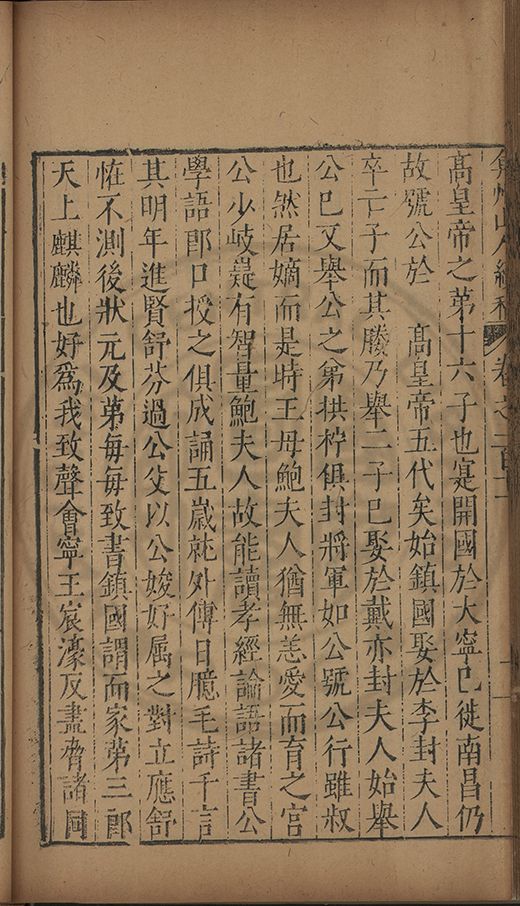 弇州山人續稿 卷之一百十一
高皇帝之第十六子也寔開國於大寧已徙南昌仍
故號公於　高皇帝五代矣始鎮國娶於李封夫人
卒亡子而其媵乃舉二子已娶於戴亦封夫人始舉
公已又舉公之弟拱柠俱封將軍如公號公行雖叔
也然居嫡而是時王母鮑夫人猶無恙愛而育之宮
公少岐嶷有智量鮑夫人故能讀孝經論語諸書公
學語即口授之俱成誦五歲就外傅日臆毛詩千言
其明年進賢舒芬過公父以公姣好属之對立應舒
恠不測後狀元及第每每致書鎮國謂而家第三郎
天上麒麟也好為我致聲會寧王宸濠反盡脅諸同